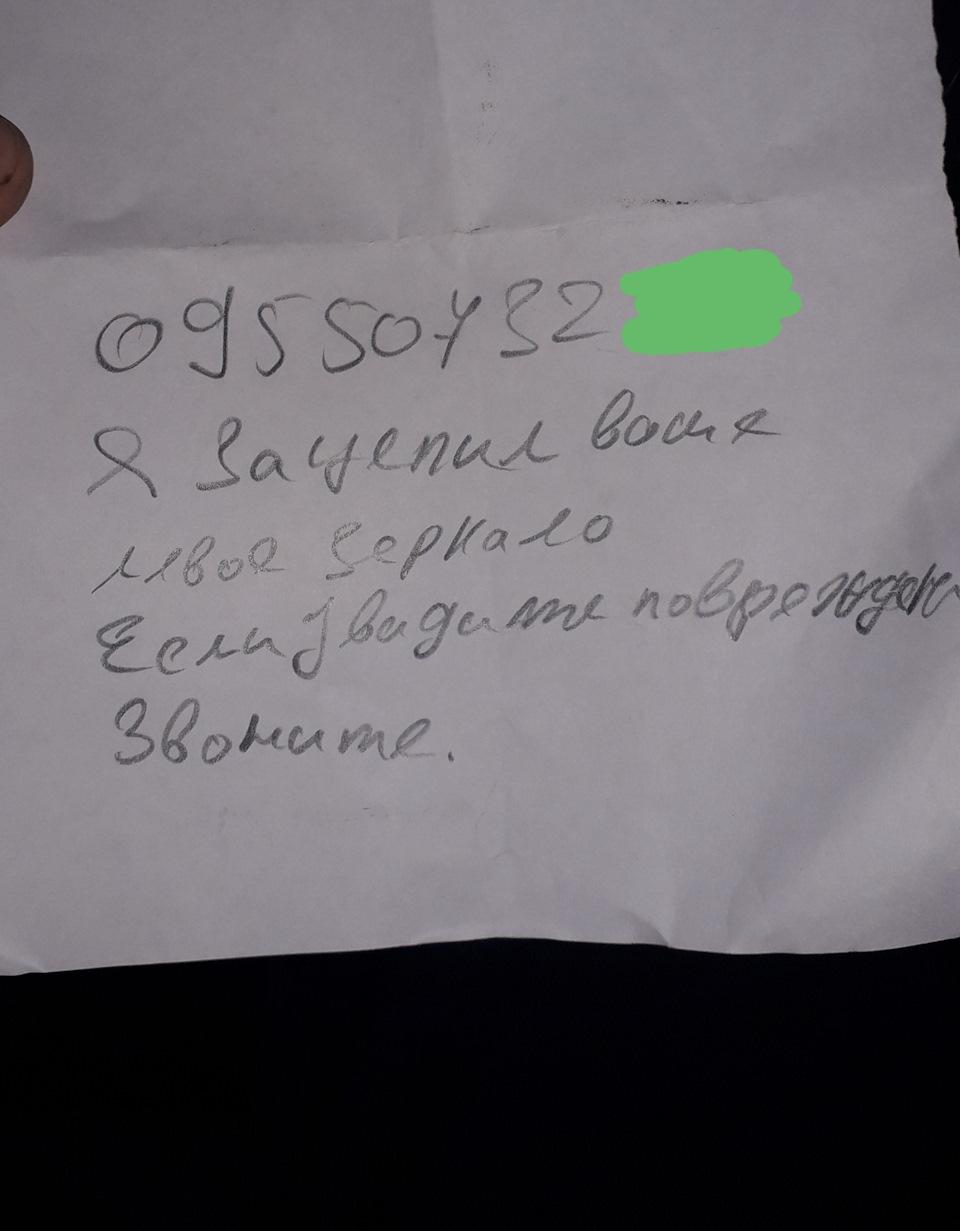 09550732
Я зацепил ваше
левое зеркало
Если увидите
Звоните.